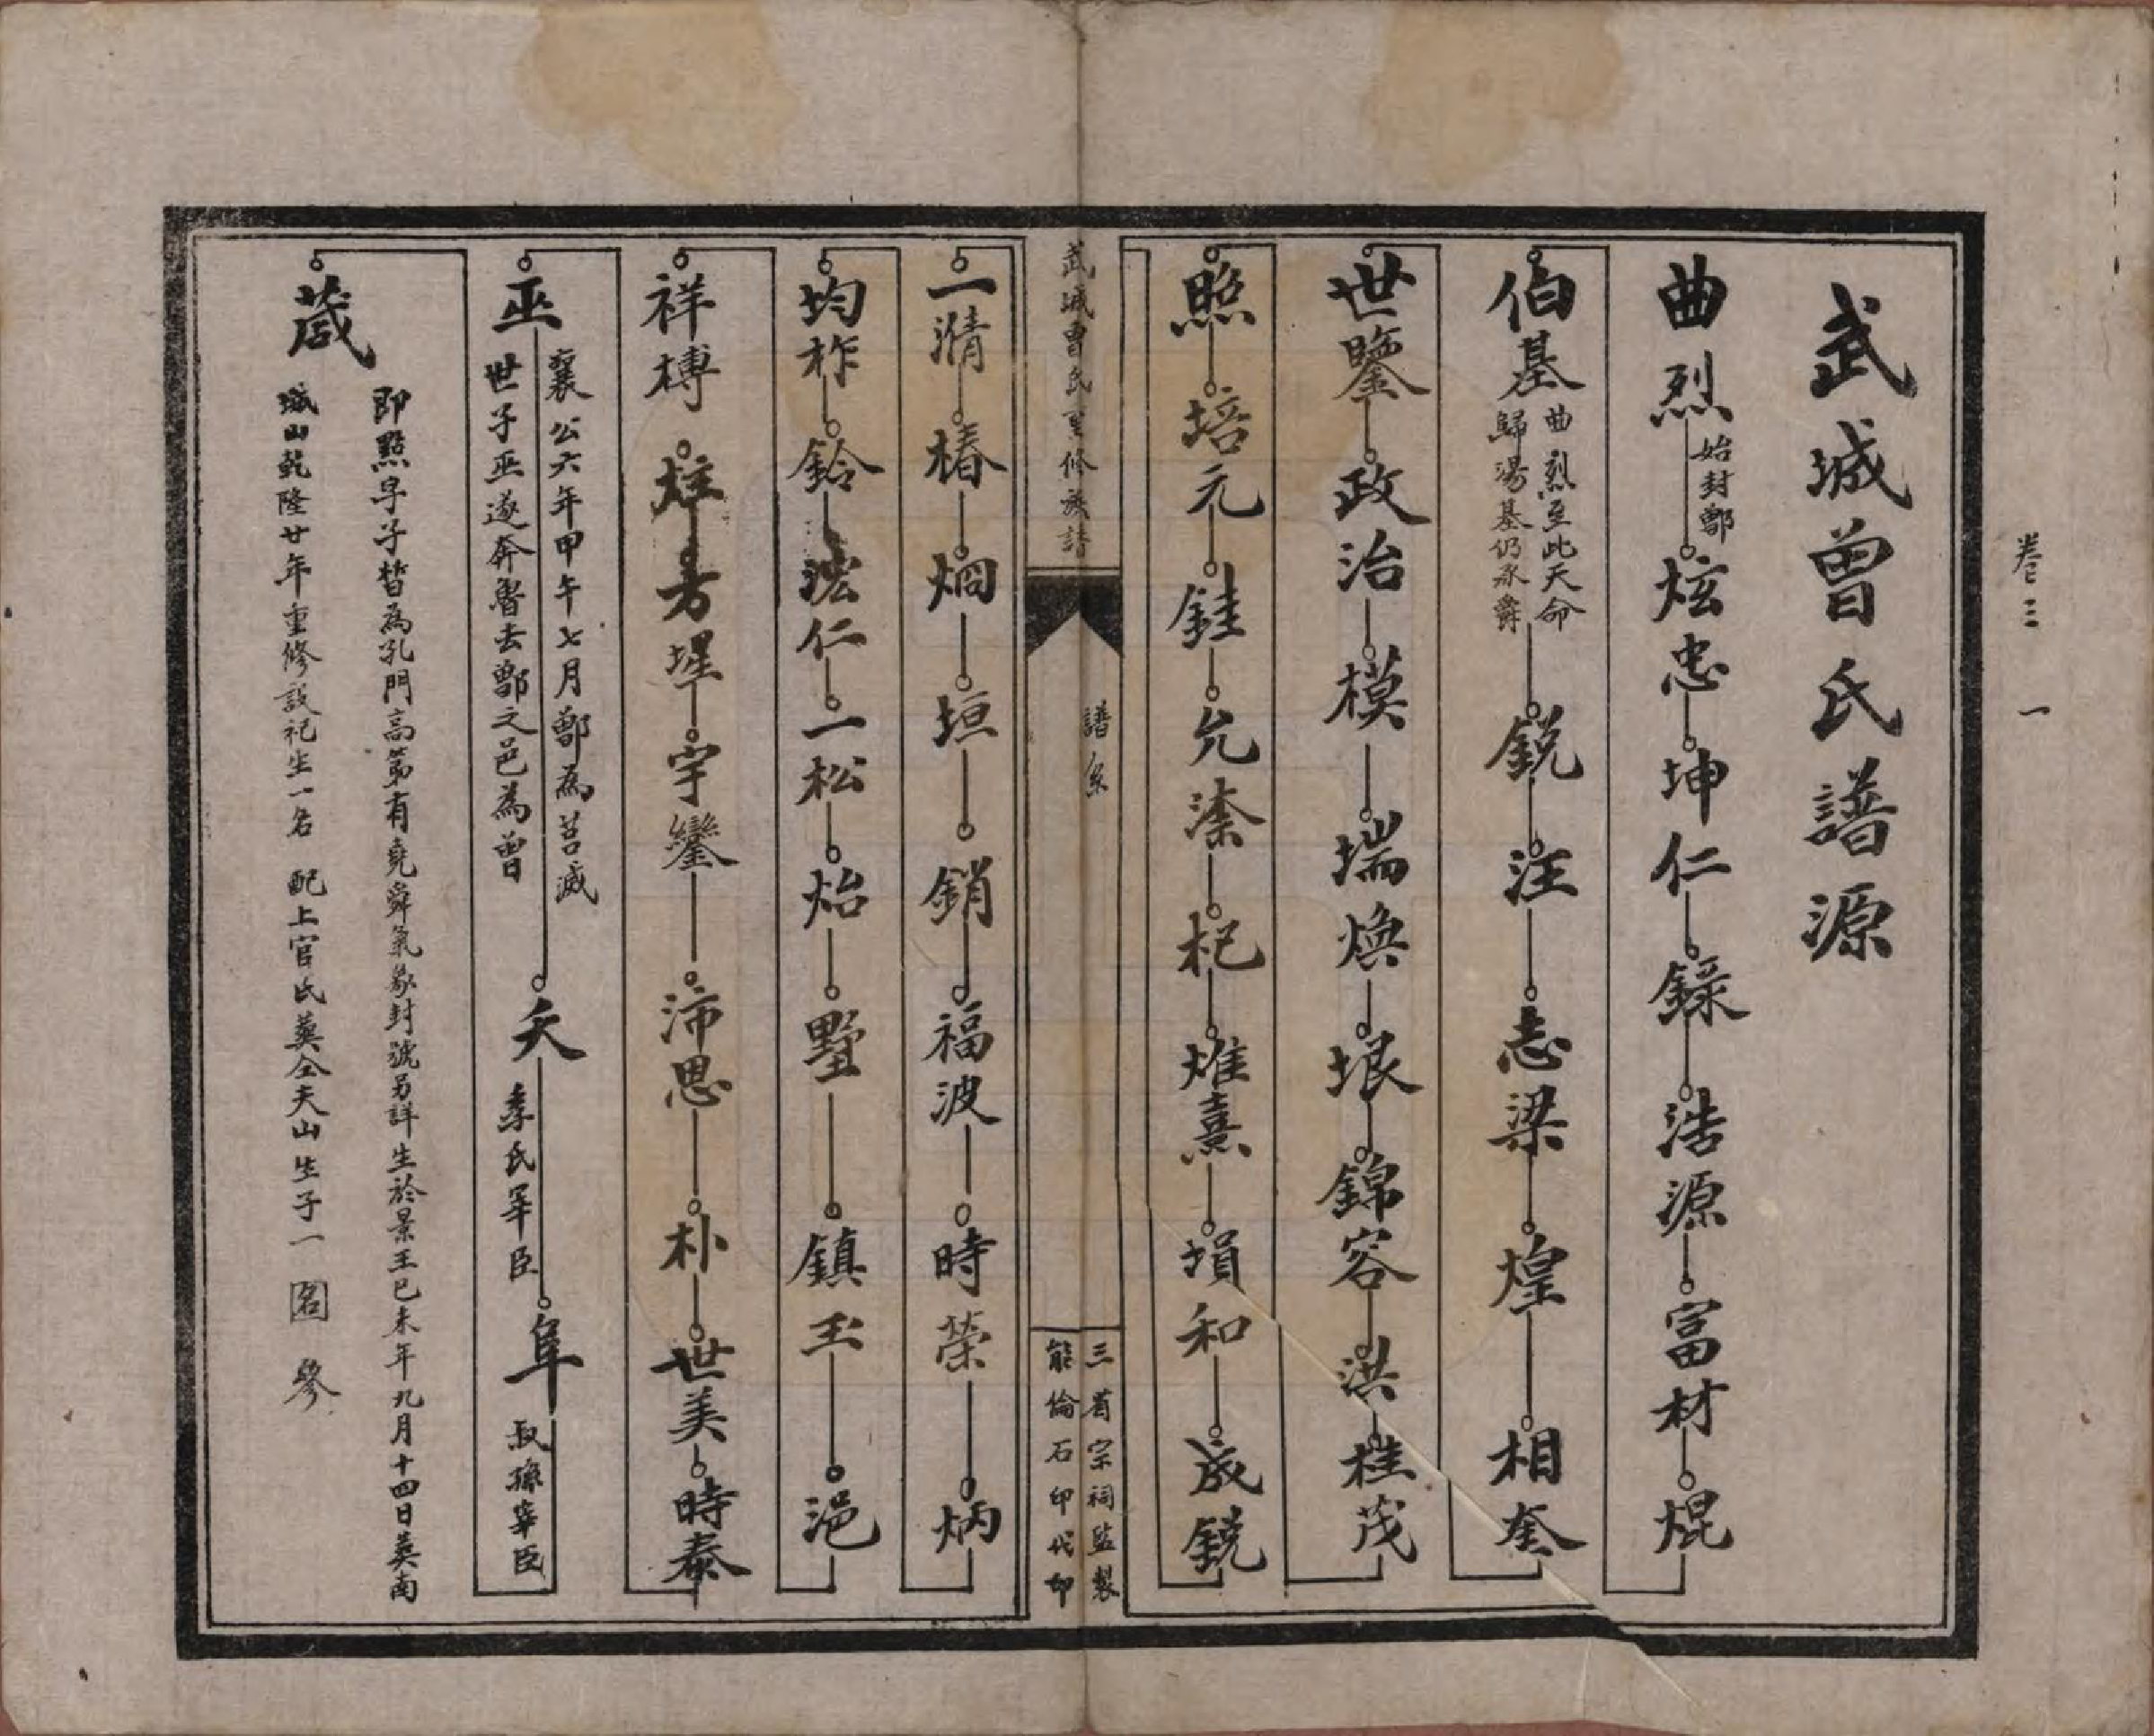 卷三 一
武城曾氏譜源
曲烈 始封鄫 炫忠 坤仁 錄 浩源 富材 焜
伯基 曲烈至此天命 歸湯基仍承爵 銳 汪 志梁 煌 相奎
世鑒 政治 模 瑞煥 垠 錦容 洪 桂茂
熙 培元 銈 允溱 杞 焳熹 塤和 成銳
武城曾氏重修族譜
譜系
三省宗祠監製
能倫石印代印
一淯 椿 烱 垣 銷 福波 時榮 炳
均柞 鈴 浤仁 一松 炲 墅 鎮玉 浥
祥榑 炷 芳 墀 宇鑾 沛思 朴 世美 時泰
巫 襄公六年甲午七月鄫為莒滅
世子巫遂奔魯去鄫之邑為曾
夭 季氏宰臣 阜 叔孫宰臣
蒧
即點字子皙為孔門高第有堯舜氣象封號另詳生於景王巳未年九月十四日塟南
城山乾隆廿年重修設祀生一名 配上官氏塟仝夫山生子一 名 參